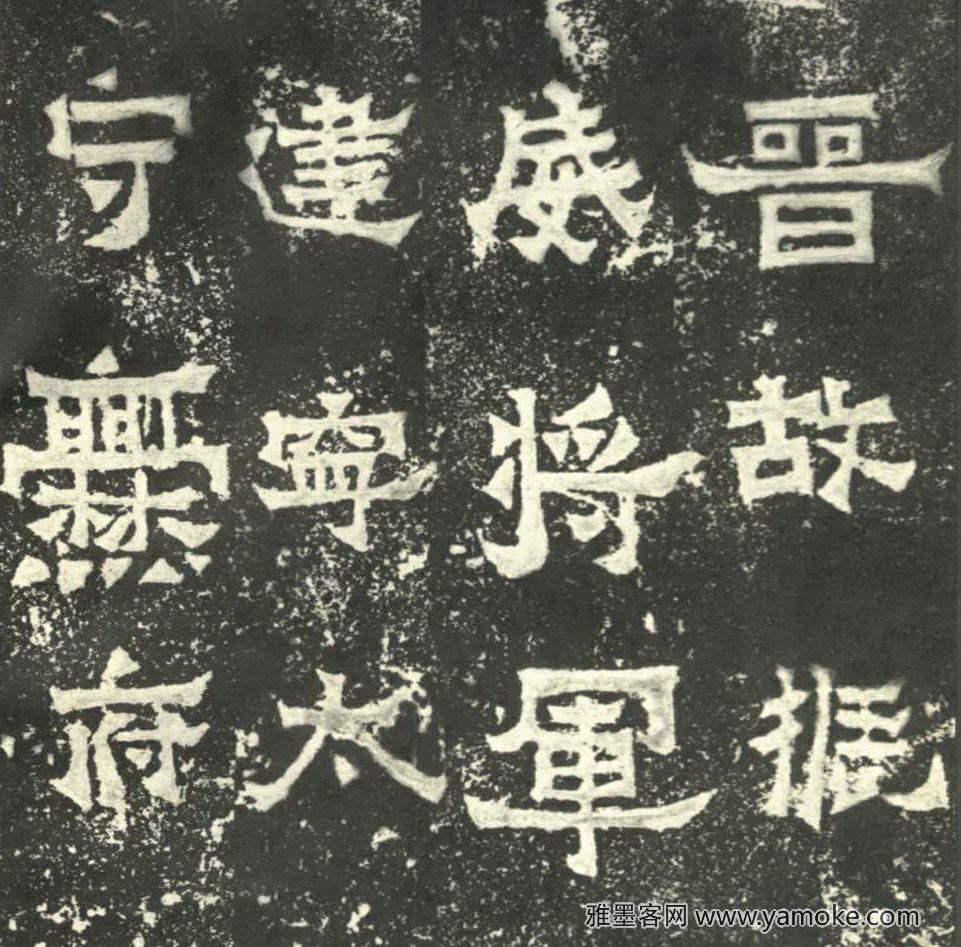 晉故振
威將軍
建寧太
守爨府
雅墨客网 www.yamoke.com